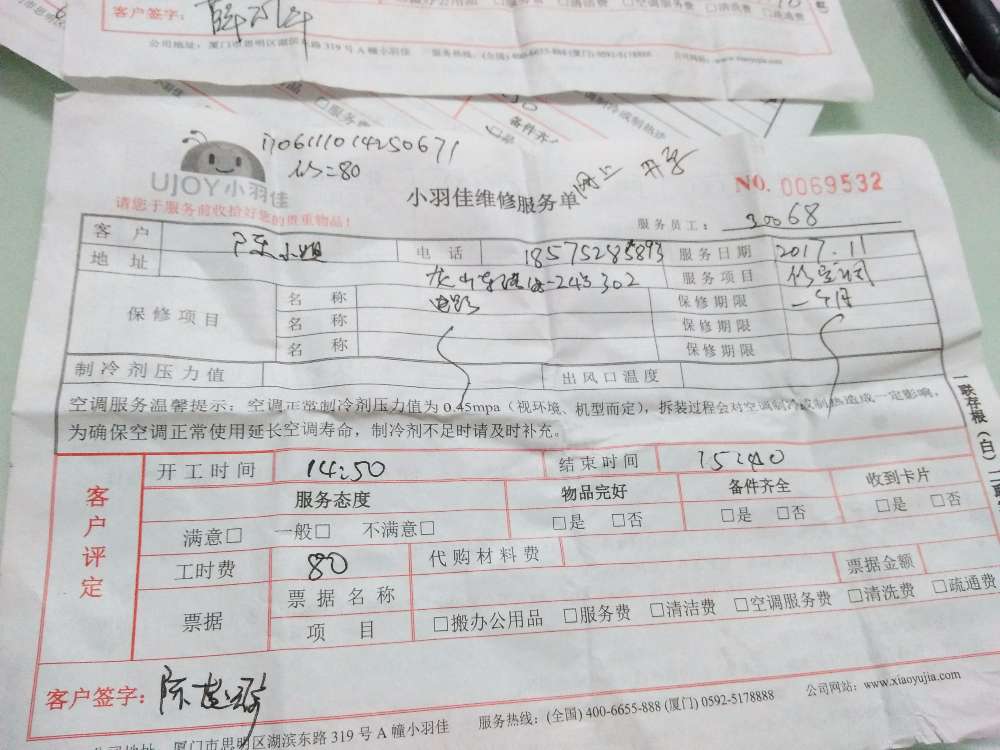 客户签字：
公司地址：厦门市思明区湖滨东路 319 号 A 幢小羽佳 服务热线：(全国) 400-6655-888 (厦门) 0592-5178888 公司网站：www.xiaoyujia.com
备件齐
1706111014250671
80
UJOY小羽佳
小羽佳维修服务单 网上
NO. 0069532
请您于服务前收拾好您的贵重物品！
服务员工：30068
客 户 陈小姐 电 话 服务日期 2017.11
地 址 -243 302 服务项目 修空调
保修项目 名 称 电路 保修期限 一个月
名 称 保修期限
名 称 保修期限
制冷剂压力值 出风口温度
空调服务温馨提示：空调正常制冷剂压力值为 0.45mpa（视环境、机型而定），拆装过程会对空调制冷或制热造成一定影响，
为确保空调正常使用延长空调寿命，制冷剂不足时请及时补充。
一联存根（白）
客户评定
开工时间 14:50 结束时间 15:40
服务态度 物品完好 备件齐全 收到卡片
满意□ 一般□ 不满意□ □是 □否 □是 □否 □是 □否
工时费 80 代购材料费
票据 票据名称 票据金额
项 目 □搬办公用品 □服务费 □清洁费 □空调服务费 □清洗费 □疏通费
客户签字：陈
公司地址：厦门市思明区湖滨东路 319 号 A 幢小羽佳 服务热线：(全国) 400-6655-888 (厦门) 0592-5178888 公司网站：www.xiaoyujia.com